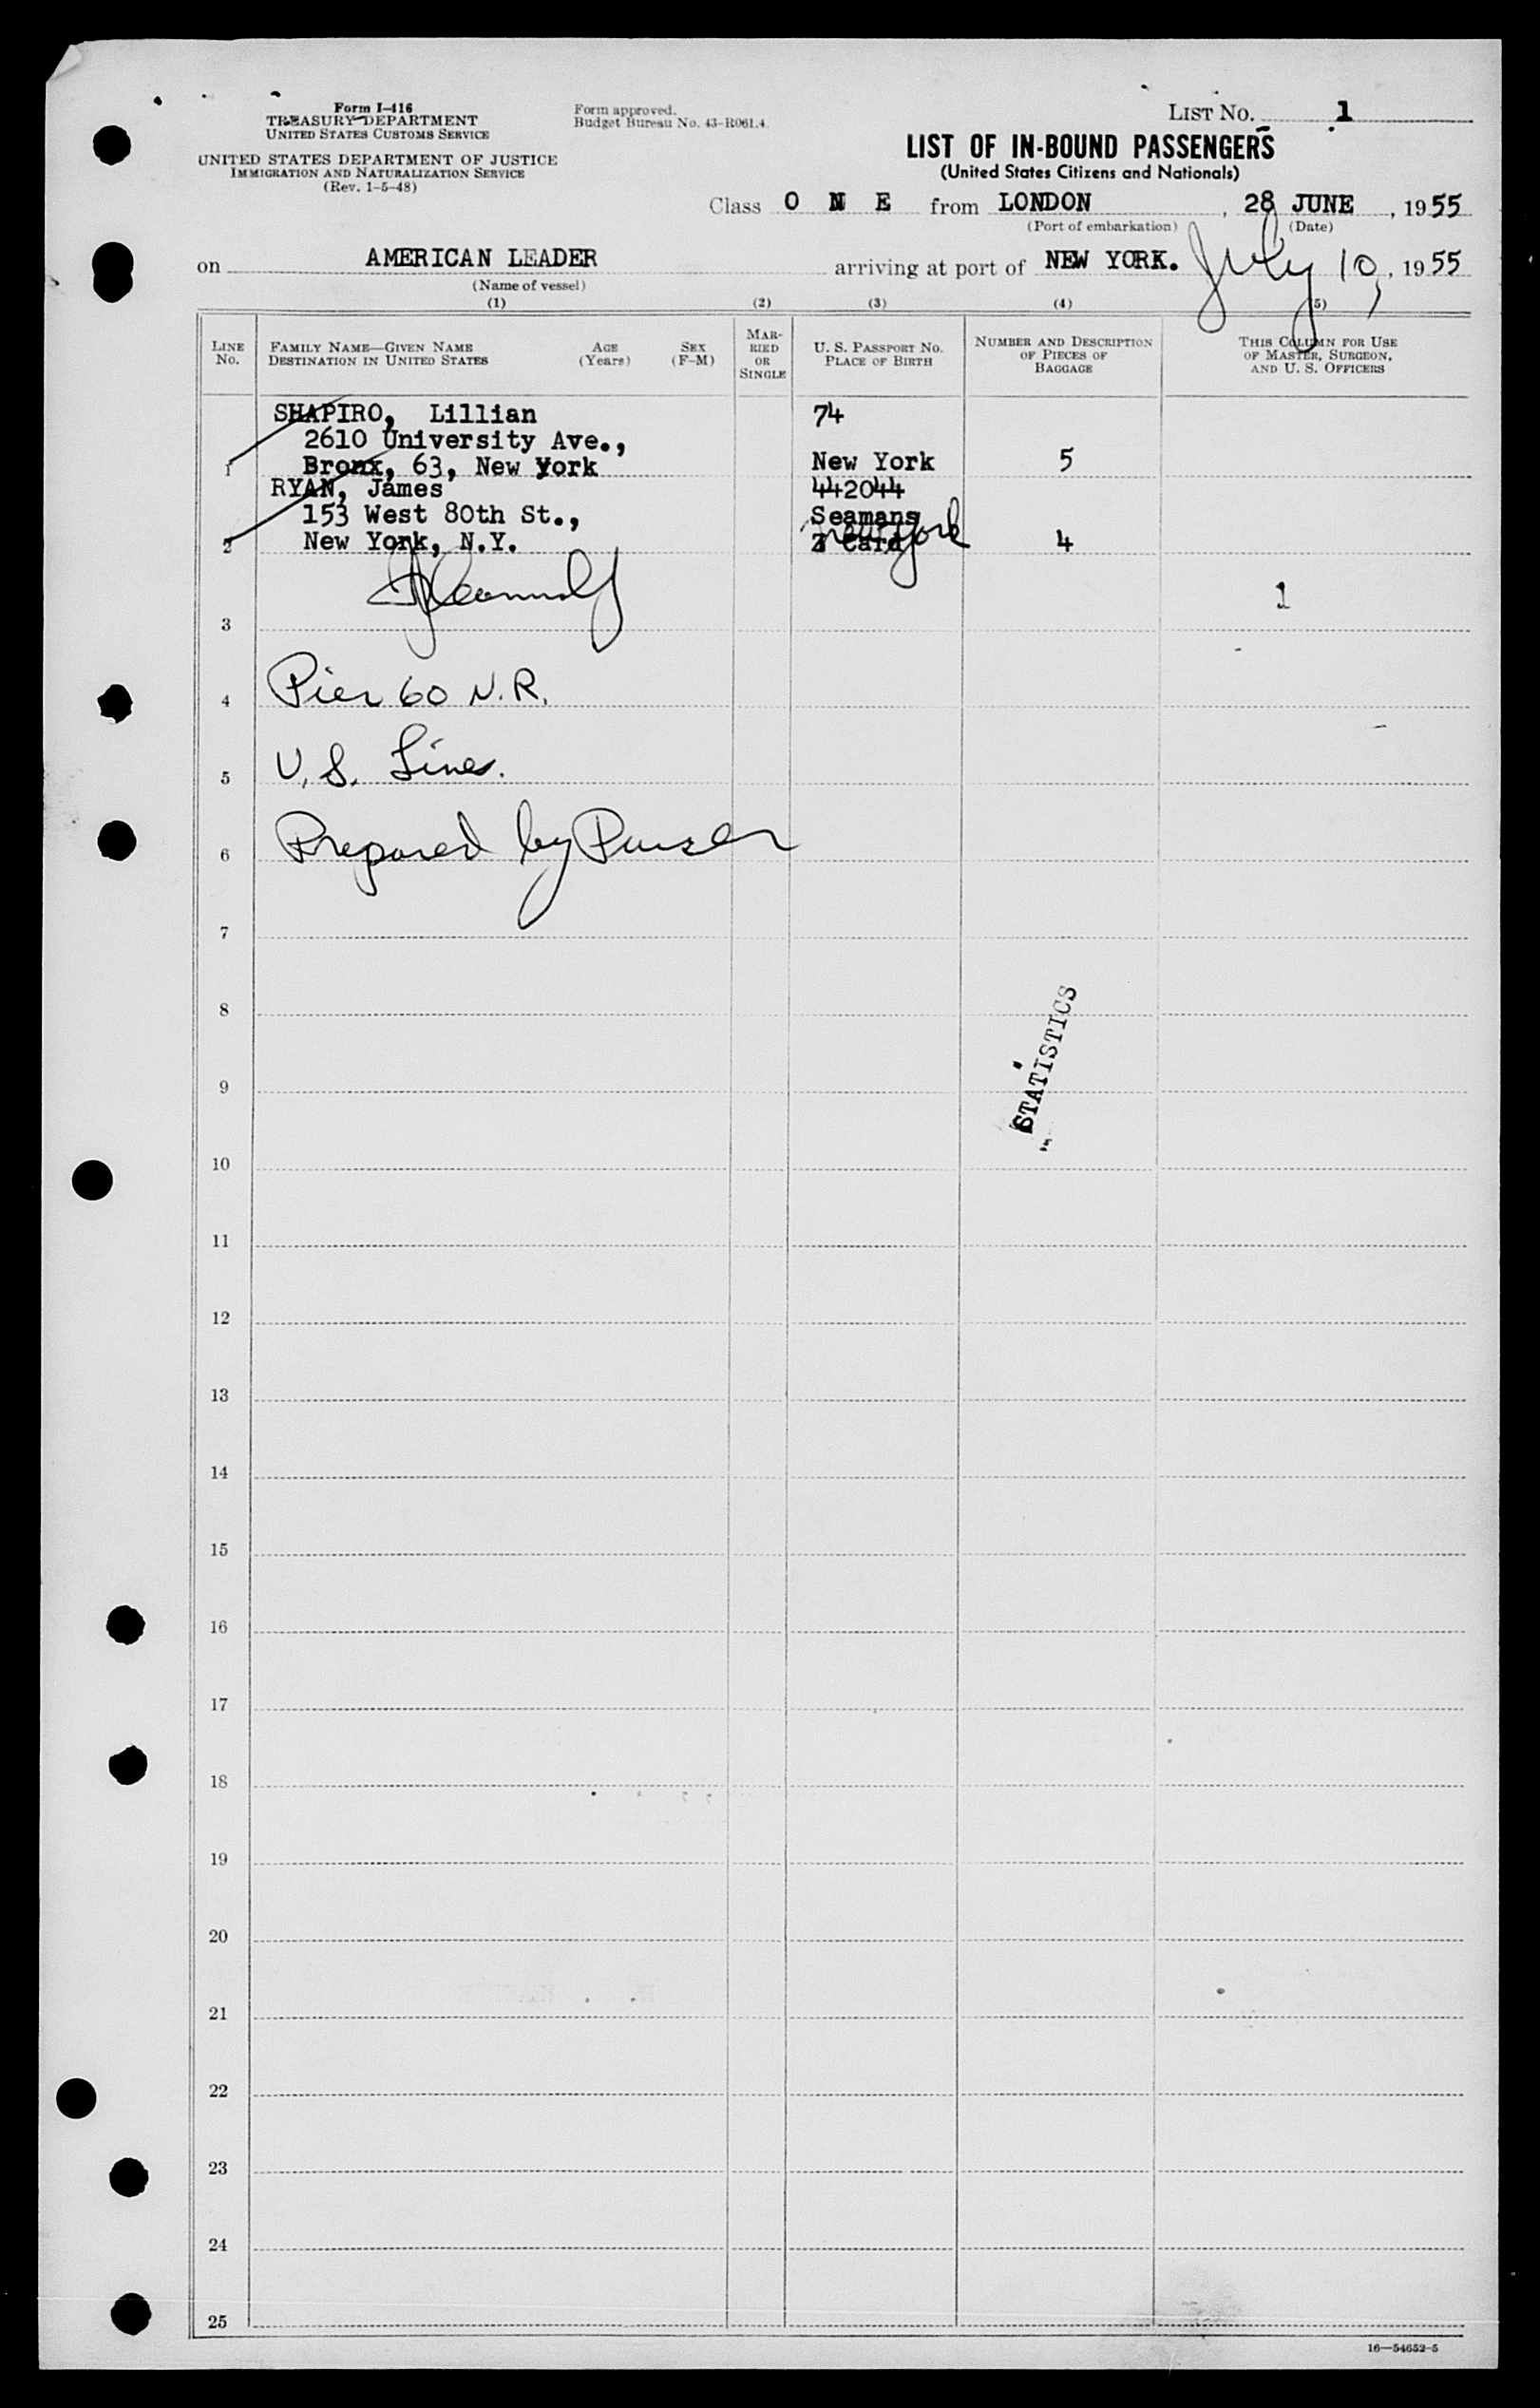 Form I-416
TREASURY DEPARTMENT
UNITED STATES CUSTOMS SERVICE
UNITED STATES DEPARTMENT OF JUSTICE
IMMIGRATION AND NATURALIZATION SERVICE
(Rev. 1-5-48)
Form approved.
Budget Bureau No. 43-R061.4.
LIST NO. 1
LIST OF IN-BOUND PASSENGERS
(United States Citizens and Nationals)
Class O N E from LONDON, 28 JUNE, 1955
(Port of embarkation) (Date)
on AMERICAN LEADER arriving at port of NEW YORK. July 10, 1955
(Name of vessel)
(1) (2) (3) (4) (5)
LINE No.
FAMILY NAME—GIVEN NAME
DESTINATION IN UNITED STATES
AGE (Years)
SEX (F-M)
MARRIED OR SINGLE
U. S. PASSPORT NO.
PLACE OF BIRTH
NUMBER AND DESCRIPTION OF PIECES OF BAGGAGE
THIS COLUMN FOR USE OF MASTER, SURGEON, AND U. S. OFFICERS
SHAPIRO, Lillian 74
2610 University Ave.,
1 Bronx, 63, New York New York 5
RYAN, James 442044
153 West 80th St., Seamans
2 New York, N.Y. Z Card New York 4
1
3
4 Pier 60 N.R.
5 U.S. Lines.
6 Prepared by Purser
7
8
STATISTICS
9
10
11
12
13
14
15
16
17
18
19
20
21
22
23
24
25
16—54652-5